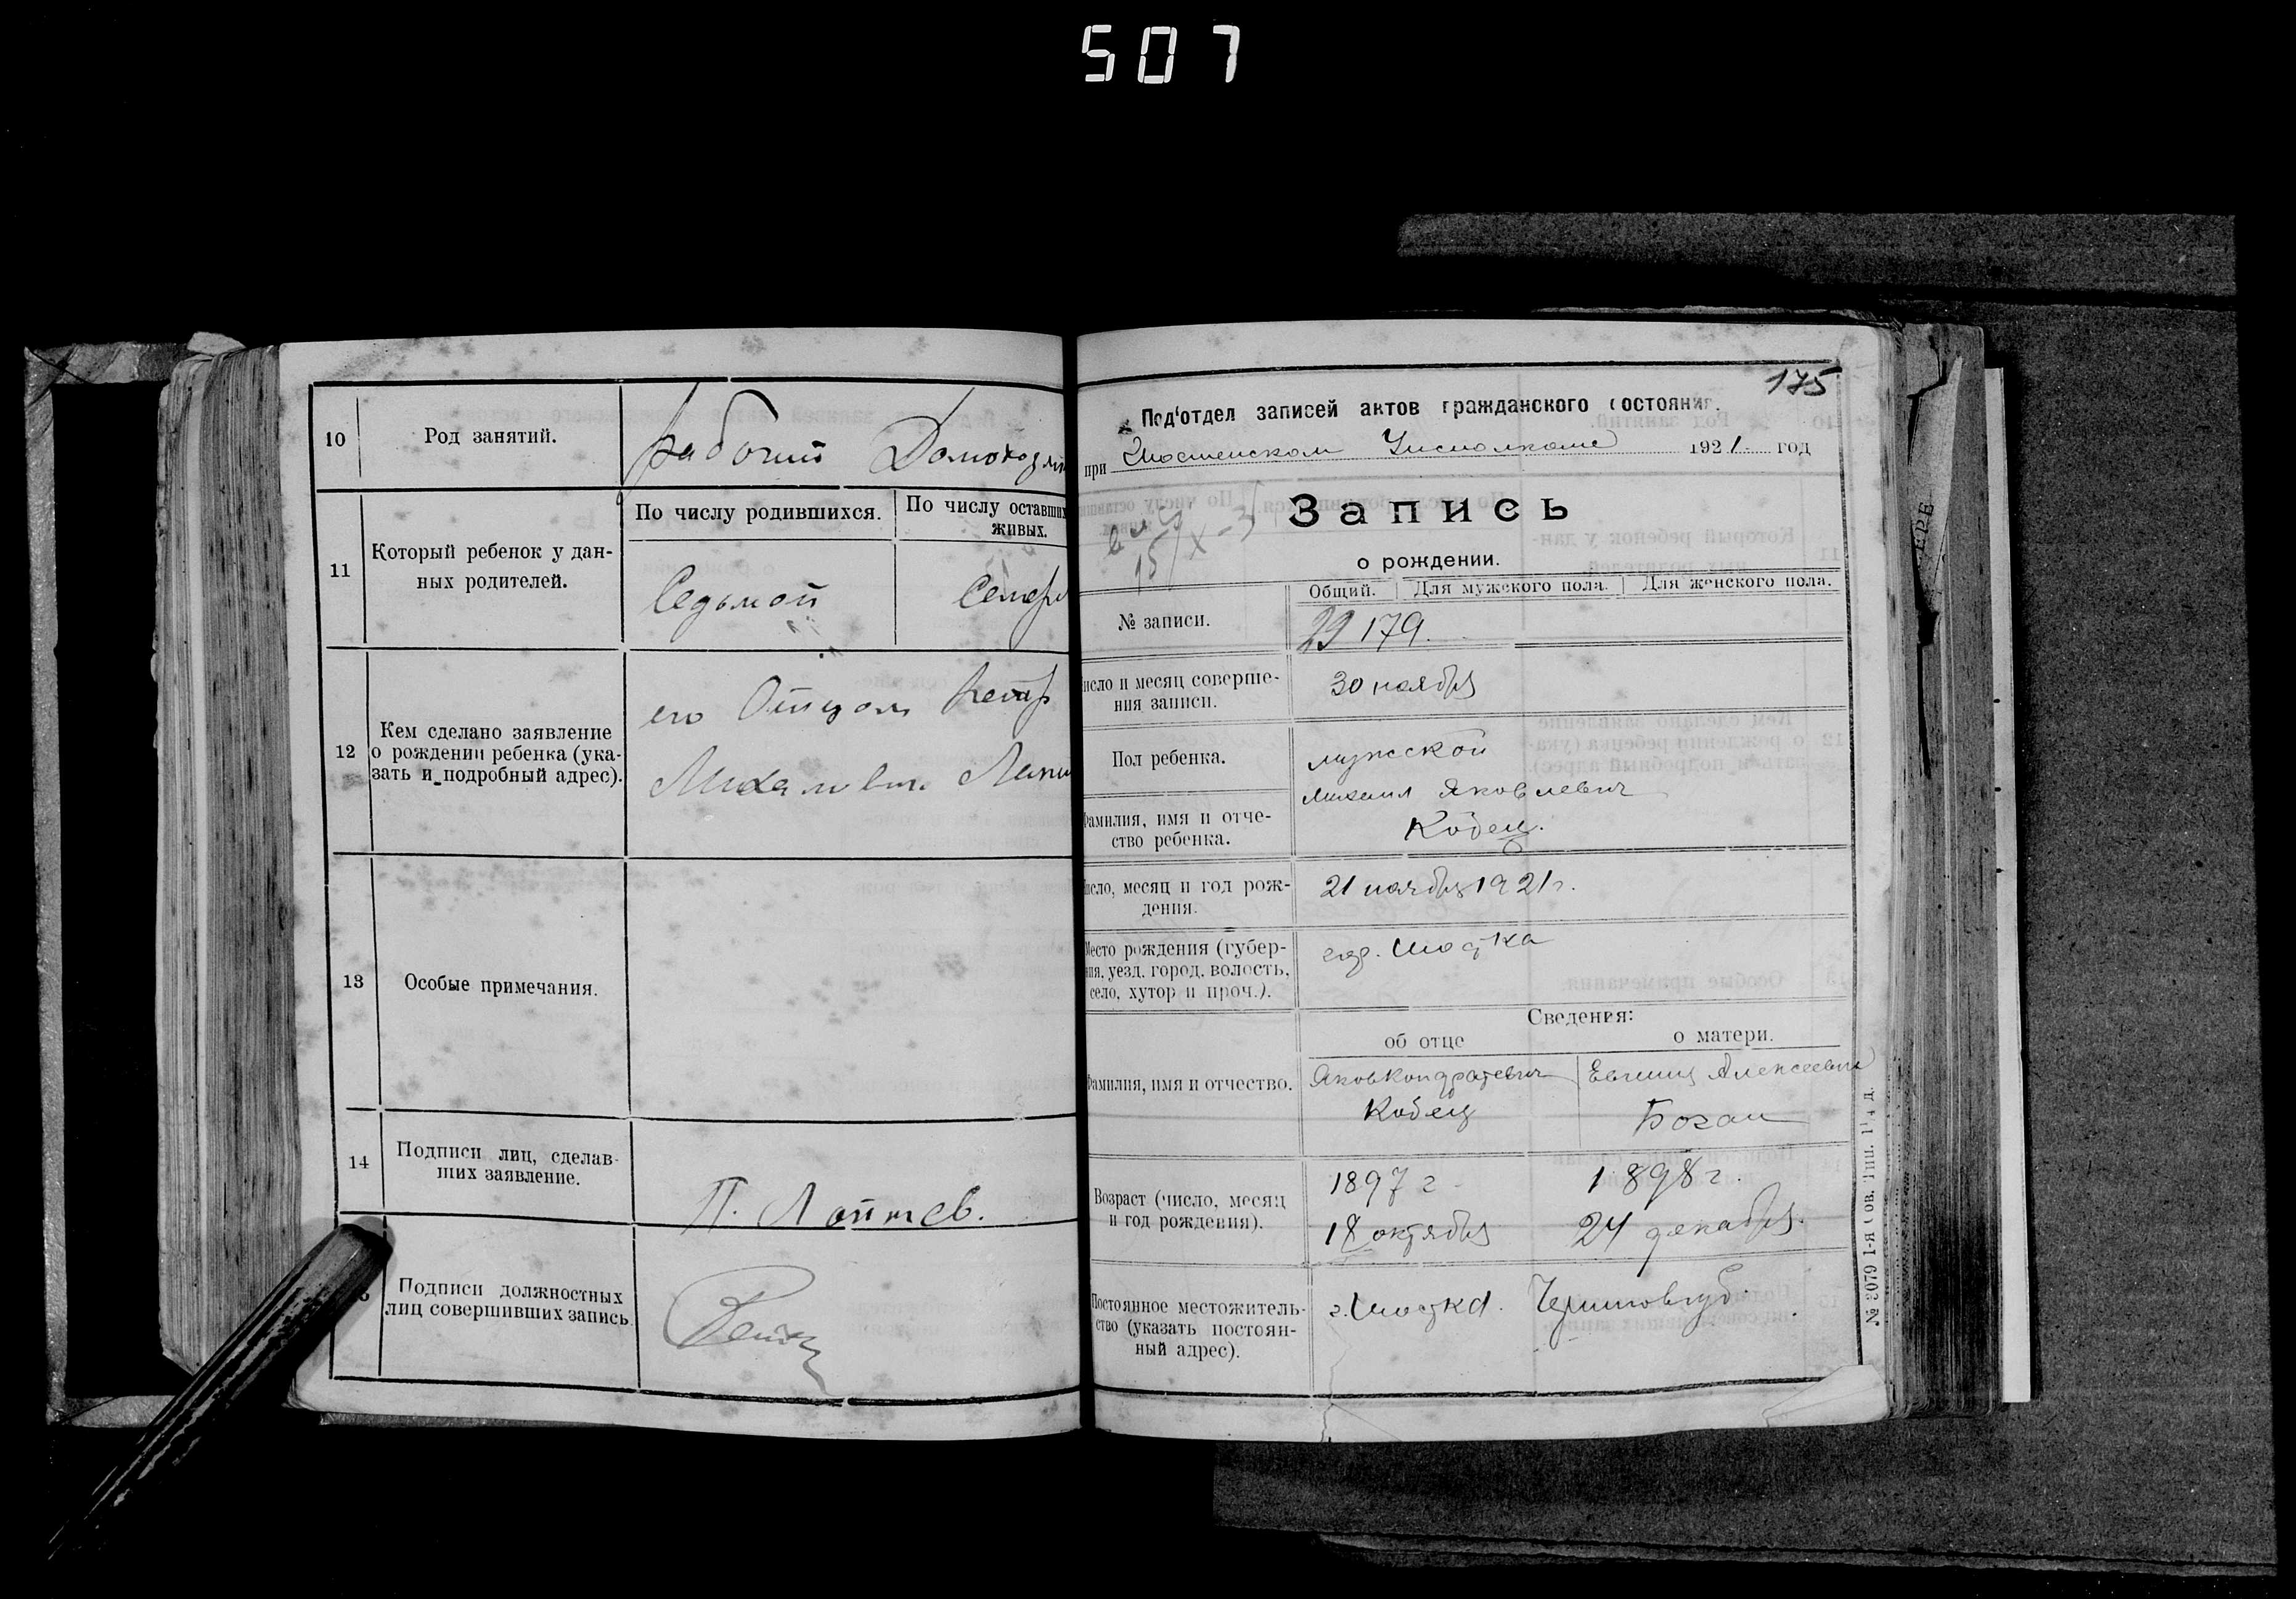 507
10
Род занятий.
рабочий Домохозяй
11
Который ребенок у дан-
ных родителей.
По числу родившихся.
По числу оставших
живых.
Седьмой
Семеро
12
Кем сделано заявление
о рождении ребенка (ука-
зать и подробный адрес).
его Отцом Петр
13
Особые примечания.
14
Подписи лиц, сделав-
ших заявление.
П.
Подписи должностных
лиц совершивших запись.
175
Под'отдел записей актов гражданского состояния.
при Шостенском Исполкоме 1921. год
15/X-3
Запись
о рождении.
Общий. Для мужского пола. Для женского пола.
№ записи.
179.
исло и месяц соверше-
ния записи.
30 ноября
Пол ребенка.
мужской
Фамилия, имя и отче-
ство ребенка.
Михаил Яковлевич
Кобец.
исло, месяц и год рож-
дения.
21 ноября 1921 г.
Место рождения (губер-
ния, уезд, город, волость,
село, хутор и проч.).
гор. Шостка
Сведения:
об отце
о матери.
Фамилия, имя и отчество.
Яков Кондратевич
Кобец
Евгения Алексеевна
Боган
Возраст (число, месяц
и год рождения).
1897 г
18 октября
1898 г.
24 декабря.
Постоянное местожитель-
ство (указать постоян-
ный адрес).
г. Шостка. Чернигов губ.
№ 3079 1-я Сов. Тип.